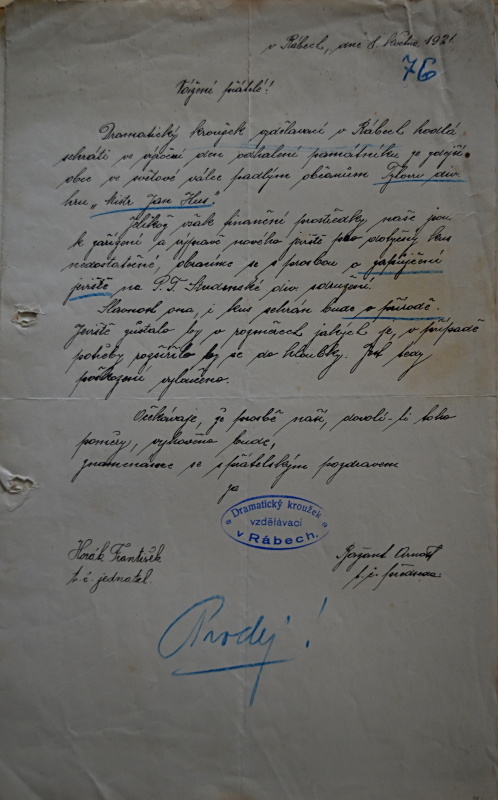 v Rábech, dne 8. května 1921.
76
Vážení přátelé!
Dramatický kroužek vzdělavací v Rábech hodlá
sehráti ve výroční den odhalení památníku ze zdejší
obce ve světové válce padlým občanům Tylovu div.
hru „Mistr Jan Hus".
Jelikož však finanční prostředky naše jsou
k zařízení a výpravě nového jeviště pro dotyčný kus
nedostatečné, obracíme se s prosbou o zapůjčení
jeviště na P.T. Studentské div. sdružení.
Slavnost ona, i kus sehrán bude v přírodě.
Jeviště zůstalo by v rozměrech jakých je, v případě
potřeby rozšířilo by se do hloubky. Jest tedy
poškození vyloučeno.
Očekávaje, že prosbě naší, dovolí-li toho
poměry, vyhověno bude,
znamenáme se s přátelským pozdravem
za
Dramatický kroužek
vzdělávací
v Rábech.
Horák František
t. č. jednatel.
Arnošt
t. č. předseda.
Prodej!